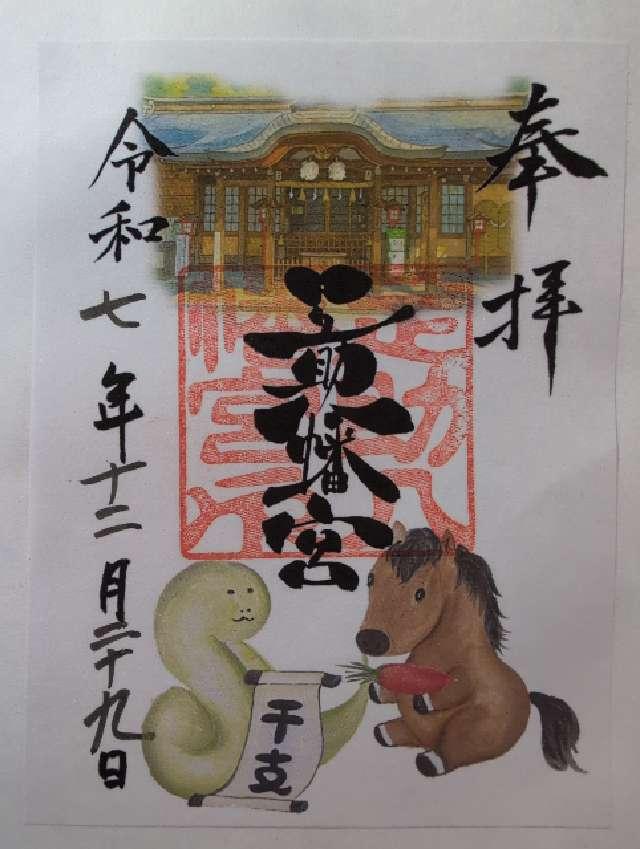 奉拝
八幡宮
令和七年十二月二十九日
干支